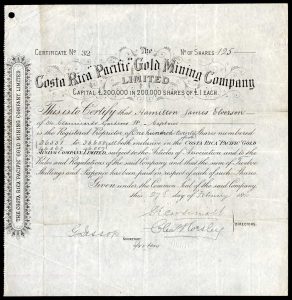 CERTIFICATE No 32
The
No OF SHARES 125
Costa Rica "Pacific" Gold Mining Company
LIMITED
CAPITAL £200,000 IN 200,000 SHARES OF £1 EACH.
This is to Certify that Hamilton James
of
is the Registered Proprietor of One hundred Shares numbered
to both inclusive in the COSTA RICA PACIFIC GOLD
MINING COMPANY, LIMITED, subject to the Articles of Association and to the
Rules and Regulations of the said Company and that the sum of Twelve
Shillings and Sixpence has been paid in respect of each of such Shares
Given under the Common Seal of the said Company
this day of February
DIRECTORS.
SECRETARY
THE COSTA RICA "PACIFIC" GOLD MINING COMPANY LIMITED